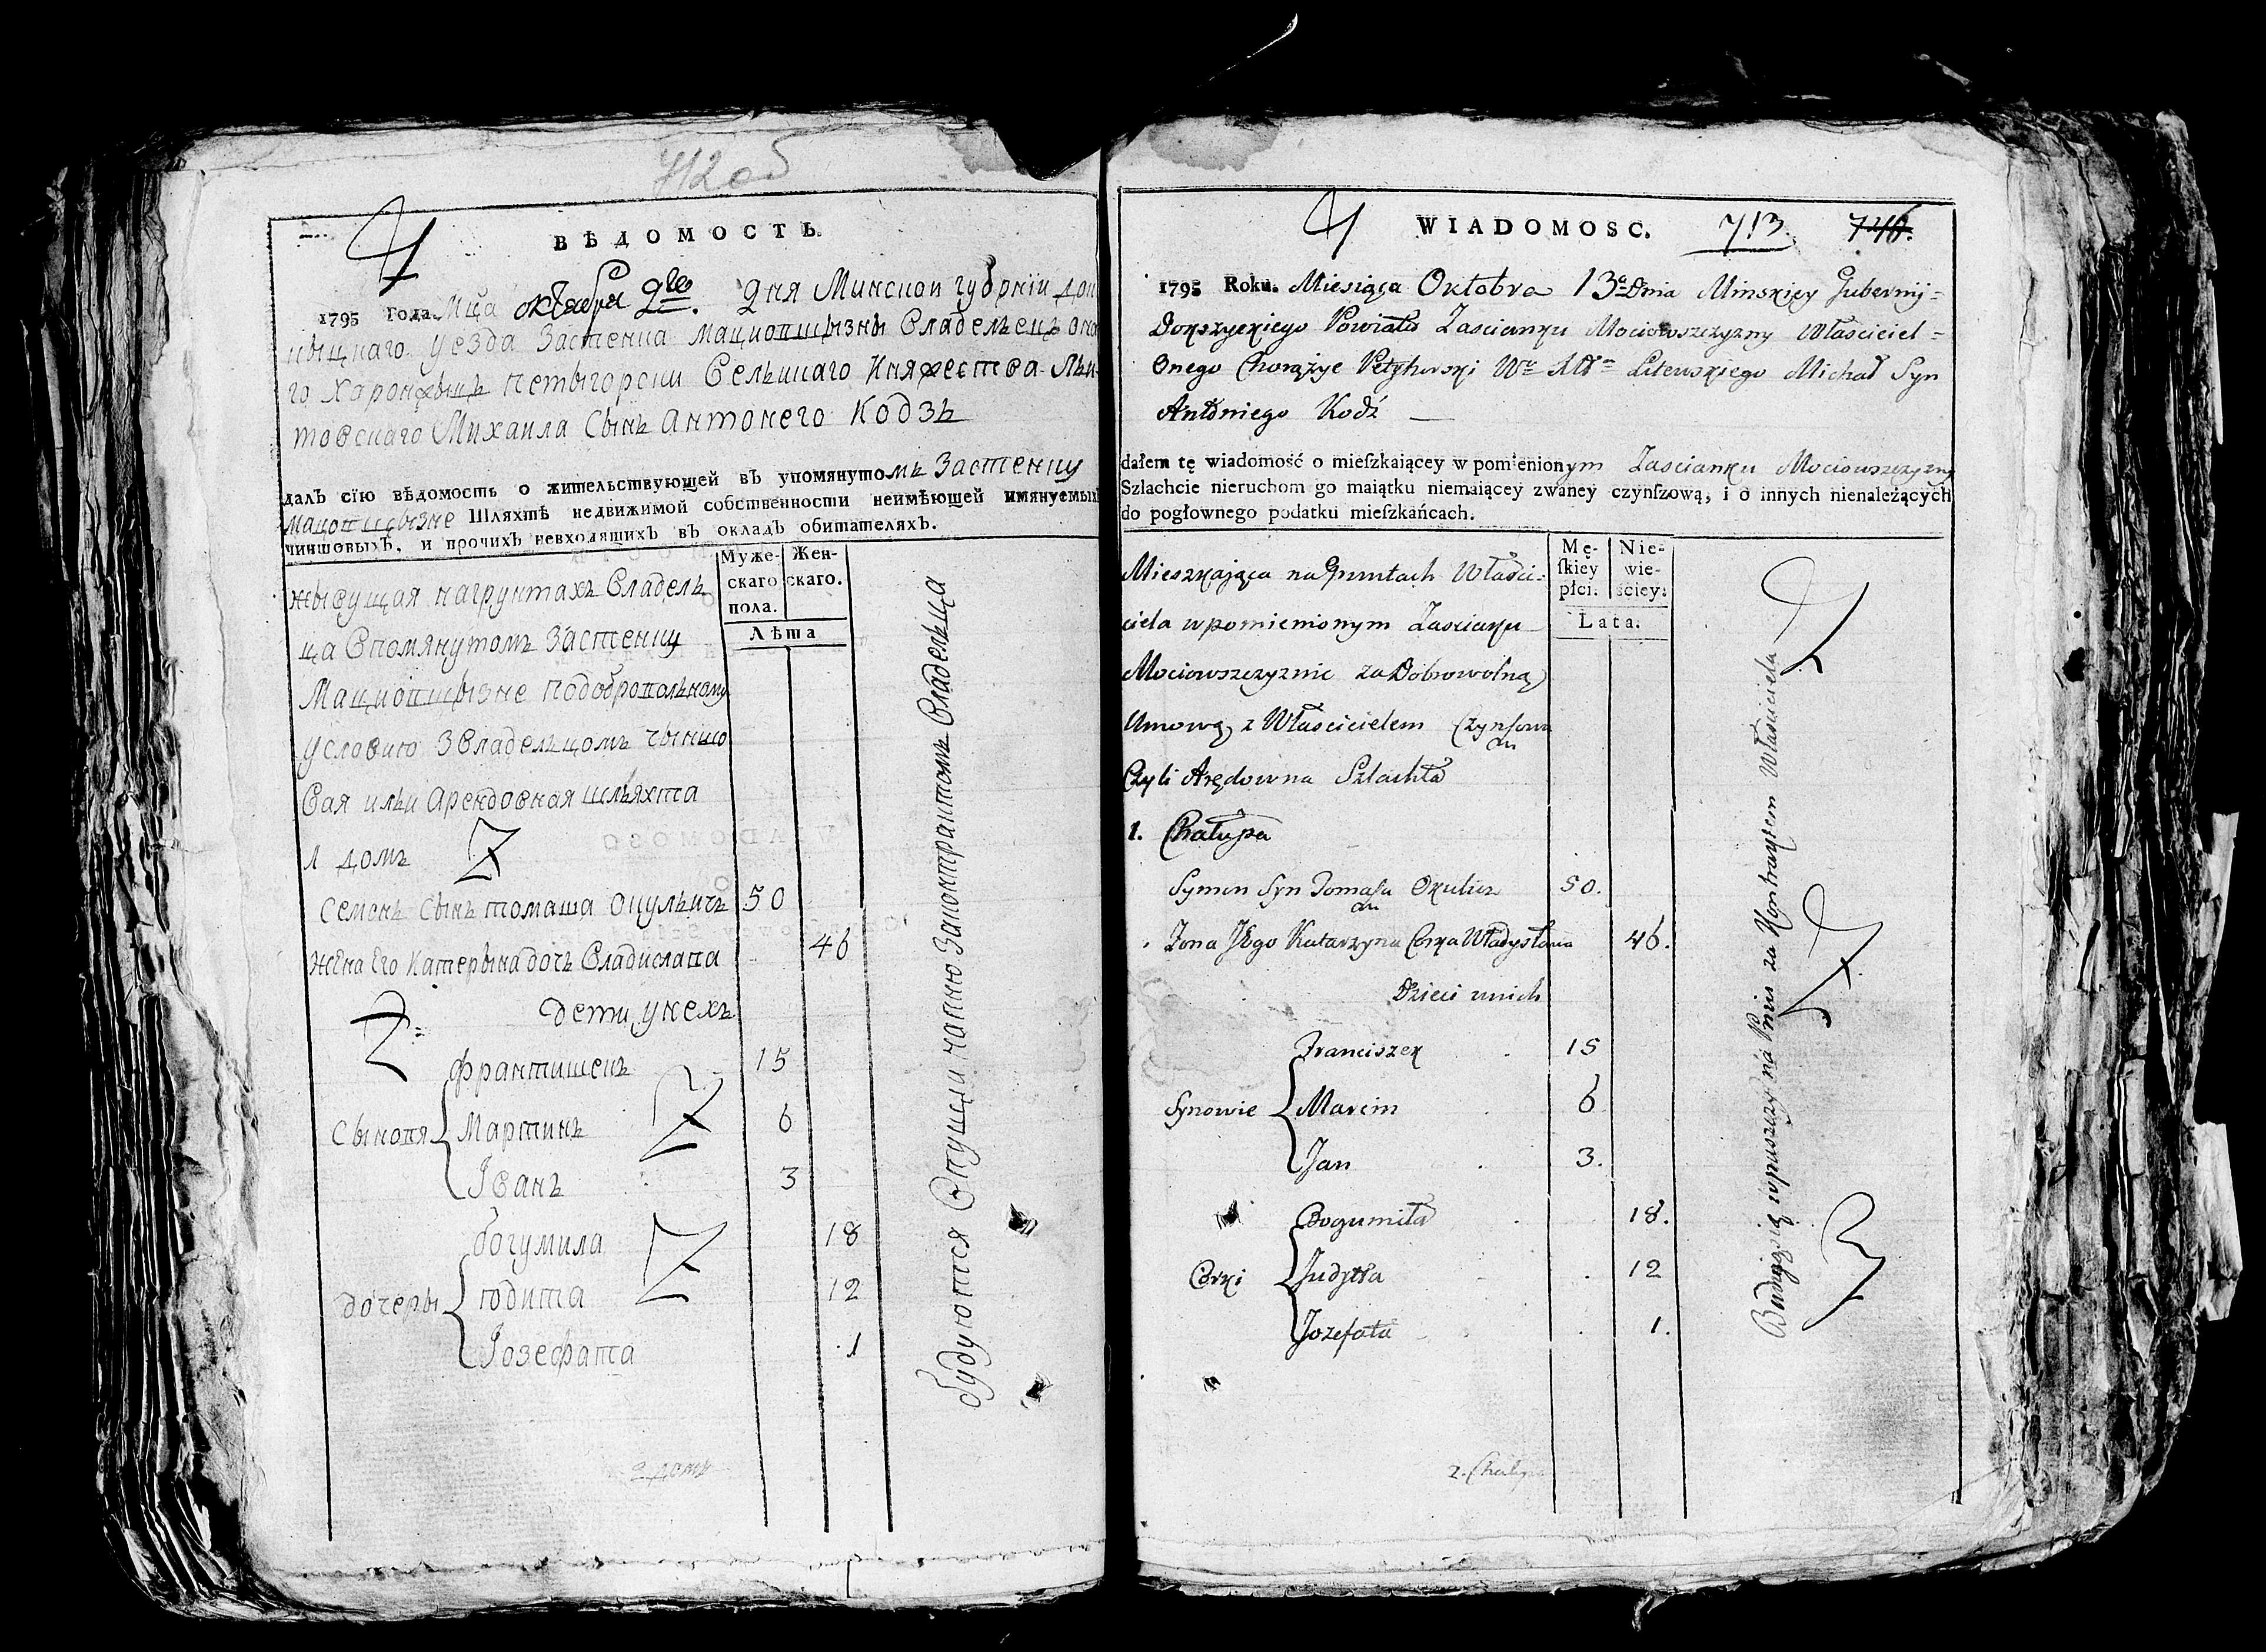 712 об
ВѢДОМОСТЬ.
1795 Года. Мца октября 9го. Дня Минскои губрніи док
шыцкаго уезда Застенка Мациовшызны Владелецъ она
го Харонжыцъ Петыгорски Вельикаго Княжества Льи
товскаго Михаила Сынъ Антонего Кодзь
далъ сїю вѣдомость о жительствующей въ упомянутомъ Застенку
Мациовшызне Шляхтѣ недвижимой собственности неимѣющей имянуемыхъ
чиншовыхъ, и прочихъ невходящихъ въ окладъ обитателяхъ.
Муже-
скаго
пола.
Жен-
скаго.
Лѣта
жывущая нагрунтахъ Владель
ца Впомянутомъ Застенку
Мациовшызне Подобровольному
условию ЗВладельцомъ чыншо
вая ильи Арендовная шляхта
1 домъ
Семонъ Сынъ томаша Окульичъ 50
Жена Его Катерына дочь Владислава 46
дети унехъ
Сыновя
Франтишекъ 15
Мартинъ 6
Іванъ 3
дочеры
богумила 18
юдита 12
Іозефата 1
2 домъ
будуютися Впущи напню Законтрактомъ Владельца
WIADOMOSC. 713. 746.
1795 Roku. Miesiąca Oktobra 13o Dnia Minskiey Gubernij=
Dokszyckiego Powiatu Zascianku Mociowszczyzny Własciciel=
Onego Chorążye Petyhorski Wo Xa Litewskiego Michał Syn
Antoniego Kodź —
dałem tę wiadomość o mieſzkaiącey w pomienionym Zascianku Mociowszczyzny
Szlachcie nieruchom go maiątku niemaiącey zwaney czynſzową, i o innych nienależących
do pogłownego podatku mieſzkańcach.
Mę-
ſkiey
płci.
Nie-
wie-
ściey:
Lata.
Mieszkająca na Gruntach Własci-
ciela w pomienionym Zascianku
Mociowszczyznie za Dobrowolną
Umową z Własćicielem Czynſowa
Czyli Arędowna Szlachta
1. Chałupa
Symon Syn Tomaſa Okulicz 50.
Zona Jego Katarzyna Corka Władysława 46.
Dzieci unich
Synowie
Franciszek 15
Marcin 6
Jan 3.
Corki
Bogumiła 18.
Judytta 12
Jozefata 1.
2. Chałupa
Budują się wpuszczy na Pniu za Kontraktem Własciciela